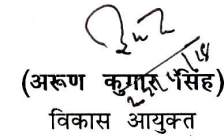 (अरूण कुमार सिंह)
विकास आयुक्त